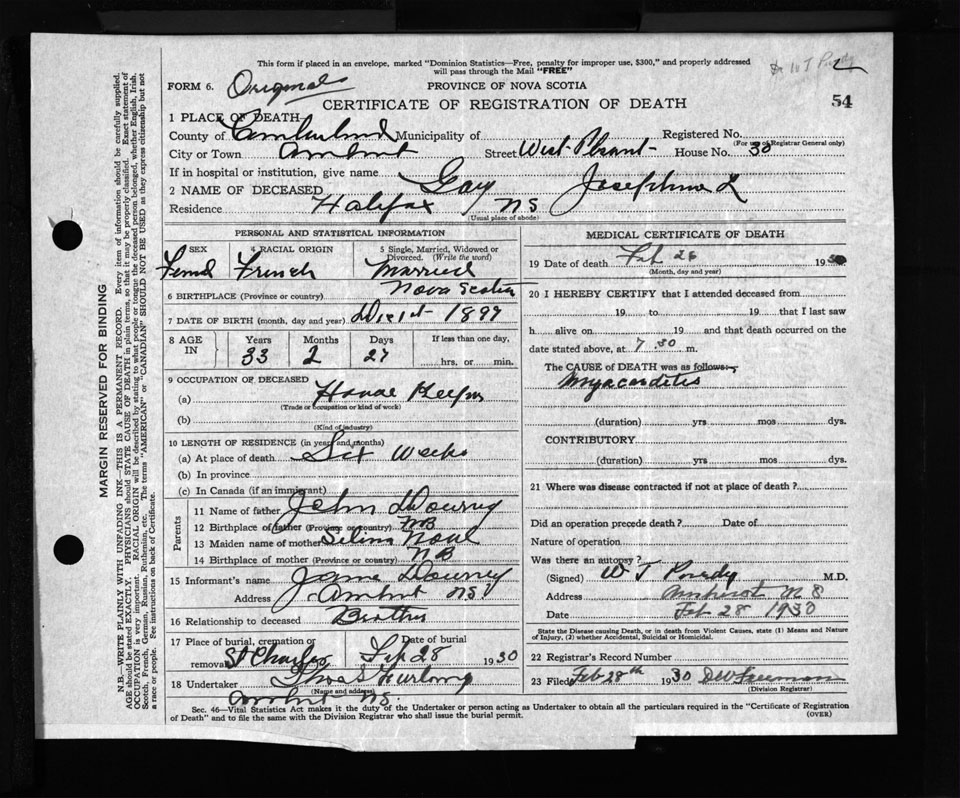 This form if placed in an envelope, marked "Dominion Statistics—Free, penalty for improper use, $300," and properly addressed
will pass through the Mail "FREE"
Dr W T Purdy
FORM 6. Original PROVINCE OF NOVA SCOTIA
CERTIFICATE OF REGISTRATION OF DEATH 54
1 PLACE OF DEATH
County of Cumberland Municipality of Registered No.
(For use of Registrar General only)
City or Town Amherst Street West Plesant House No. 30
If in hospital or institution, give name
2 NAME OF DECEASED Gay Josephine L
Residence Halifax NS
(Usual place of abode)
PERSONAL AND STATISTICAL INFORMATION
3 SEX 4 RACIAL ORIGIN 5 Single, Married, Widowed or Divorced. (Write the word)
Femal French Married
6 BIRTHPLACE (Province or country) Nova Scotia
7 DATE OF BIRTH (month, day and year) Dec 1st 1897
8 AGE IN Years Months Days If less than one day,
33 2 27 hrs. or min.
9 OCCUPATION OF DECEASED
(a) House Keeper
(Trade or occupation or kind of work)
(b)
(Kind of industry)
10 LENGTH OF RESIDENCE (in years and months)
(a) At place of death Six Weeks
(b) In province
(c) In Canada (if an immigrant)
Parents
11 Name of father John Dourey
12 Birthplace of father (Province or country) NB
13 Maiden name of mother Selina
14 Birthplace of mother (Province or country) NB
15 Informant's name Dourey
Address Amherst NS
16 Relationship to deceased Brother
17 Place of burial, cremation or removal St Charles Date of burial Feb 28 1930
18 Undertaker Thos S Furlong
(Name and address)
Amherst NS
MEDICAL CERTIFICATE OF DEATH
19 Date of death Feb 26 1930
(Month, day and year)
20 I HEREBY CERTIFY that I attended deceased from
19 to 19 that I last saw
h alive on 19 and that death occurred on the
date stated above, at 7 30 m.
The CAUSE of DEATH was as follows:
Myocarditis
(duration) yrs mos dys.
CONTRIBUTORY
(duration) yrs mos dys.
21 Where was disease contracted if not at place of death?
Did an operation precede death? Date of
Nature of operation
Was there an autopsy?
(Signed) W T Purdy M.D.
Address Amherst N S
Date Feb 28 1930
State the Disease causing Death, or in death from Violent Causes, state (1) Means and Nature
of Injury, (2) whether Accidental, Suicidal or Homicidal.
22 Registrar's Record Number
23 Filed Feb 28th 1930 DW Freeman
(Division Registrar)
Sec. 46—Vital Statistics Act makes it the duty of the Undertaker or person acting as Undertaker to obtain all the particulars required in the "Certificate of Registration
of Death" and to file the same with the Division Registrar who shall issue the burial permit. (OVER)
MARGIN RESERVED FOR BINDING
N.B.—WRITE PLAINLY WITH UNFADING INK—THIS IS A PERMANENT RECORD. Every item of information should be carefully supplied.
AGE should be stated EXACTLY. PHYSICIANS should STATE CAUSE OF DEATH in plain terms, so that it may be properly classified. Exact statement of
OCCUPATION is very important. RACIAL ORIGIN will be described by stating to what people or tongue the deceased person belonged, whether English, Irish,
Scotch, French, German, Russian, Ruthenian, etc. The terms "AMERICAN" or "CANADIAN" SHOULD NOT BE USED as they express citizenship but not
a race or people. See instructions on back of Certificate.